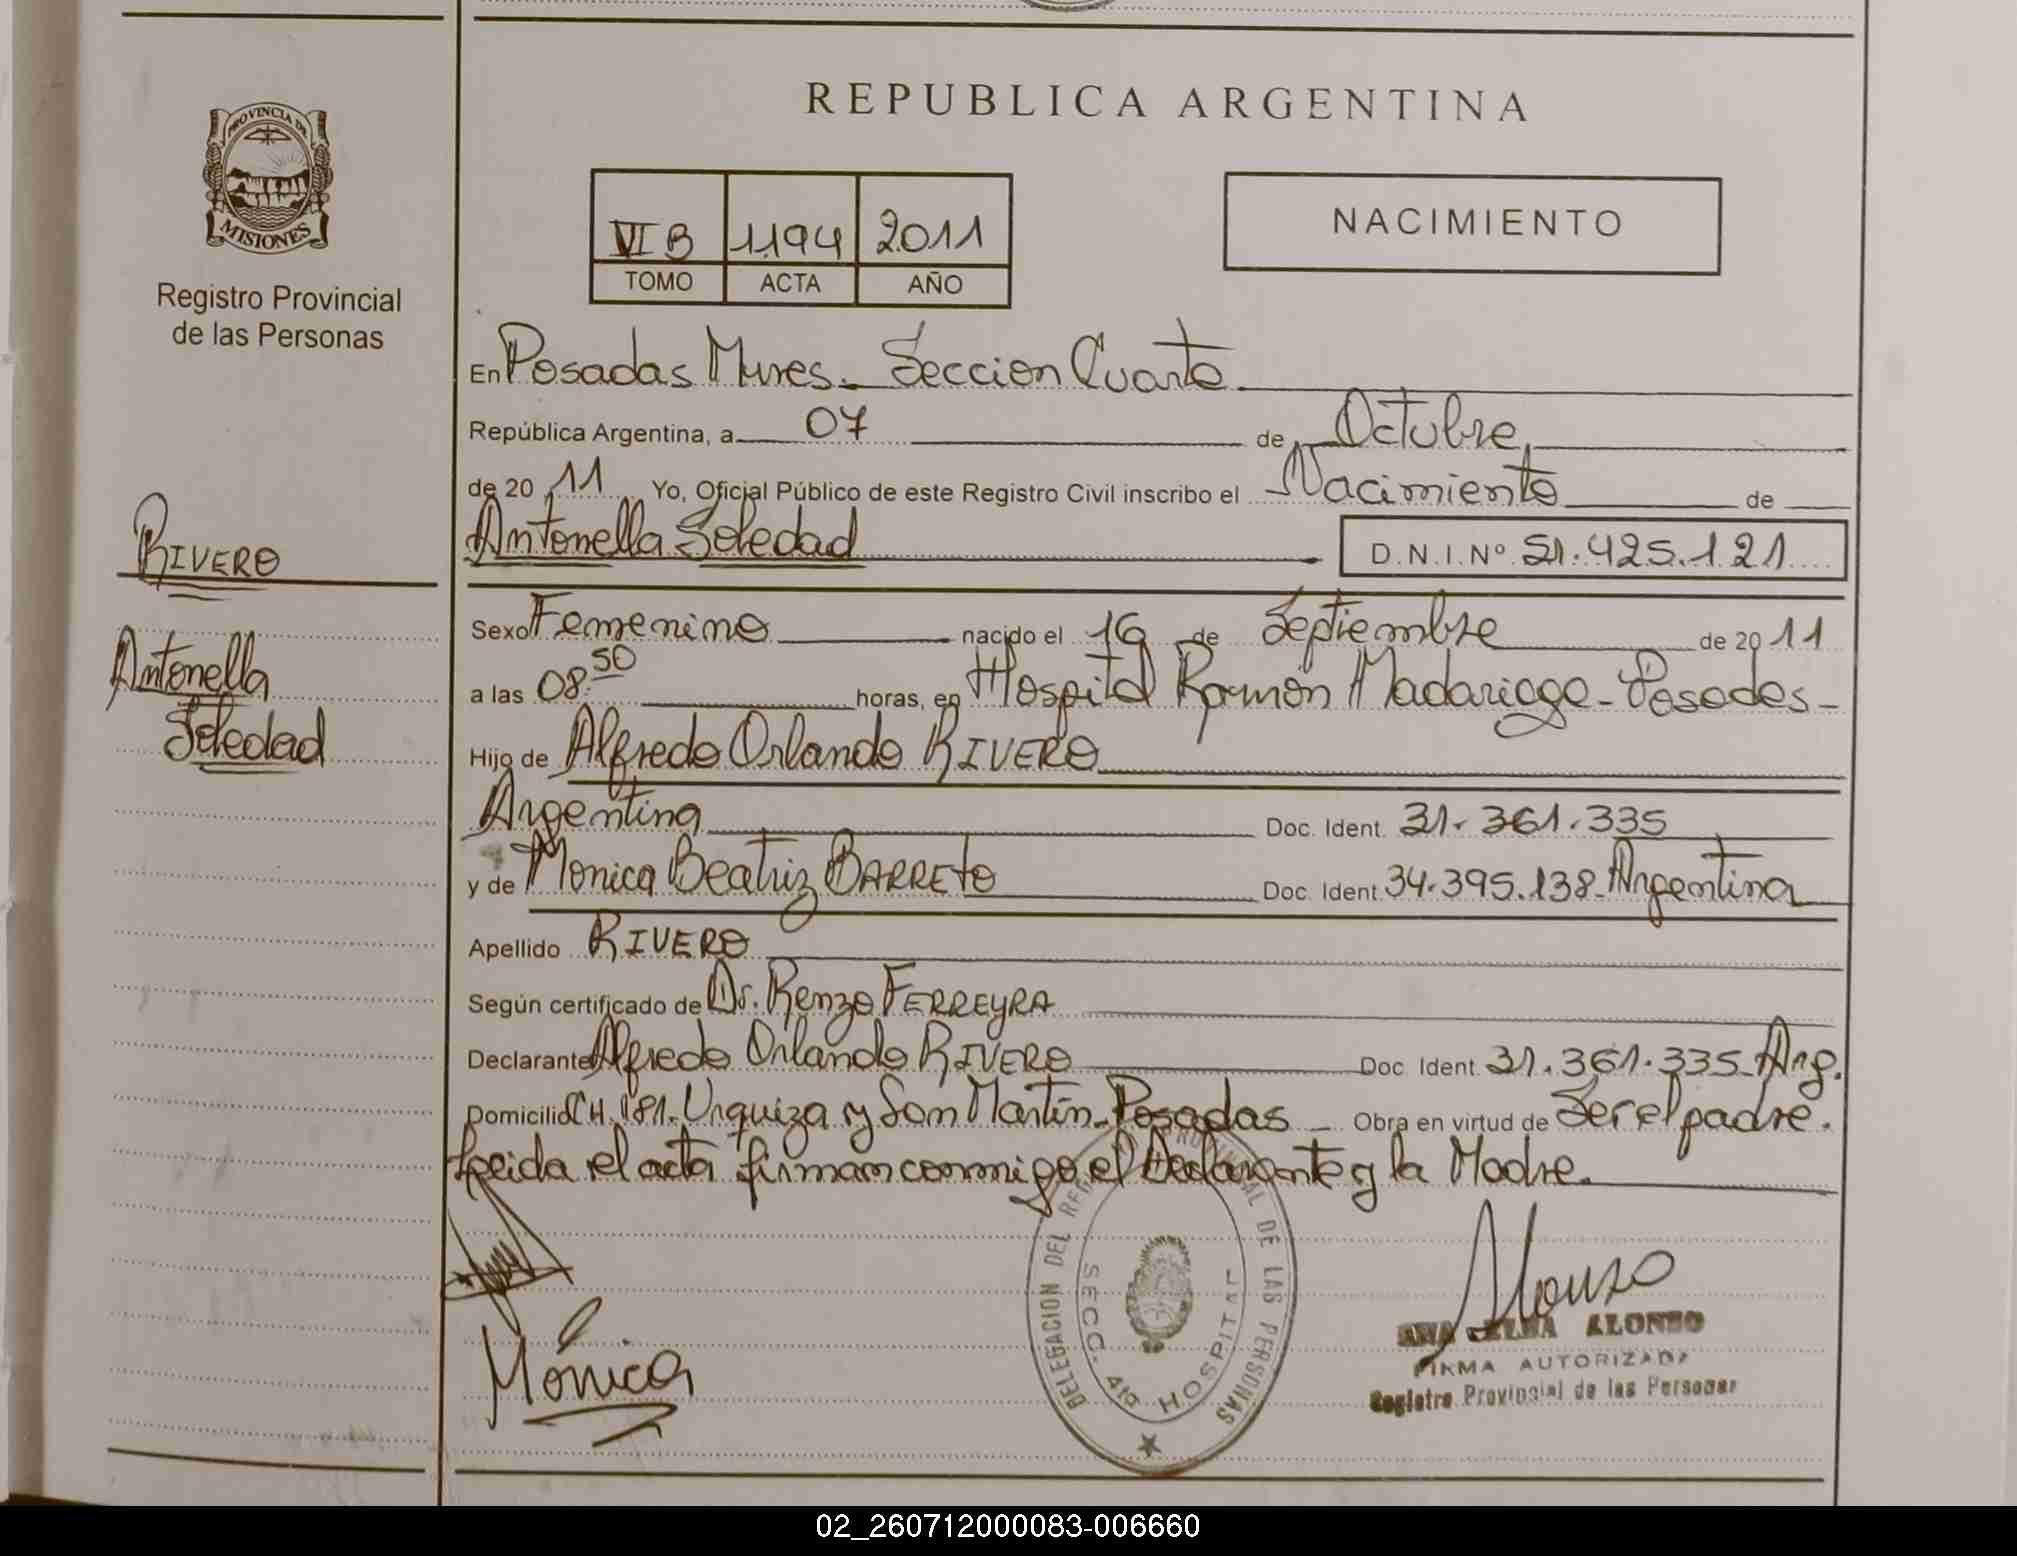 REPUBLICA ARGENTINA
PROVINCIA DE
MISIONES
Registro Provincial
de las Personas
VI B 1194 2011
TOMO ACTA AÑO
NACIMIENTO
En Posadas Mnes. Seccion Cuarta
República Argentina, a 07 de Octubre
de 20 11 Yo, Oficial Público de este Registro Civil inscribo el Nacimiento de
Antonella Soledad D.N.I. Nº 51.425.121
RIVERO
Antonella
Soledad
Sexo Femenino nacido el 16 de Septiembre de 20 11
a las 08:50 horas, en Hospital Ramón Madariaga - Posadas -
Hijo de Alfredo Orlando RIVERO
Argentina Doc. Ident. 31.361.335
y de Monica Beatriz BARRETO Doc. Ident. 34.395.138 - Argentina
Apellido RIVERO
Según certificado de Dr. Renzo FERREYRA
Declarante Alfredo Orlando RIVERO Doc. Ident. 31.361.335 - Arg.
Domicilio CH. 181. Urquiza y San Martín - Posadas - Obra en virtud de Ser el padre.
Leida el acta firman conmigo el Declarante y la Madre.
Mónica
DELEGACION DEL REGISTRO PROVINCIAL DE LAS PERSONAS
SECC. 4ta HOSPITAL
Alonso
ANA CELBA ALONSO
FIRMA AUTORIZADA
Registro Provincial de las Personas
02_260712000083-006660